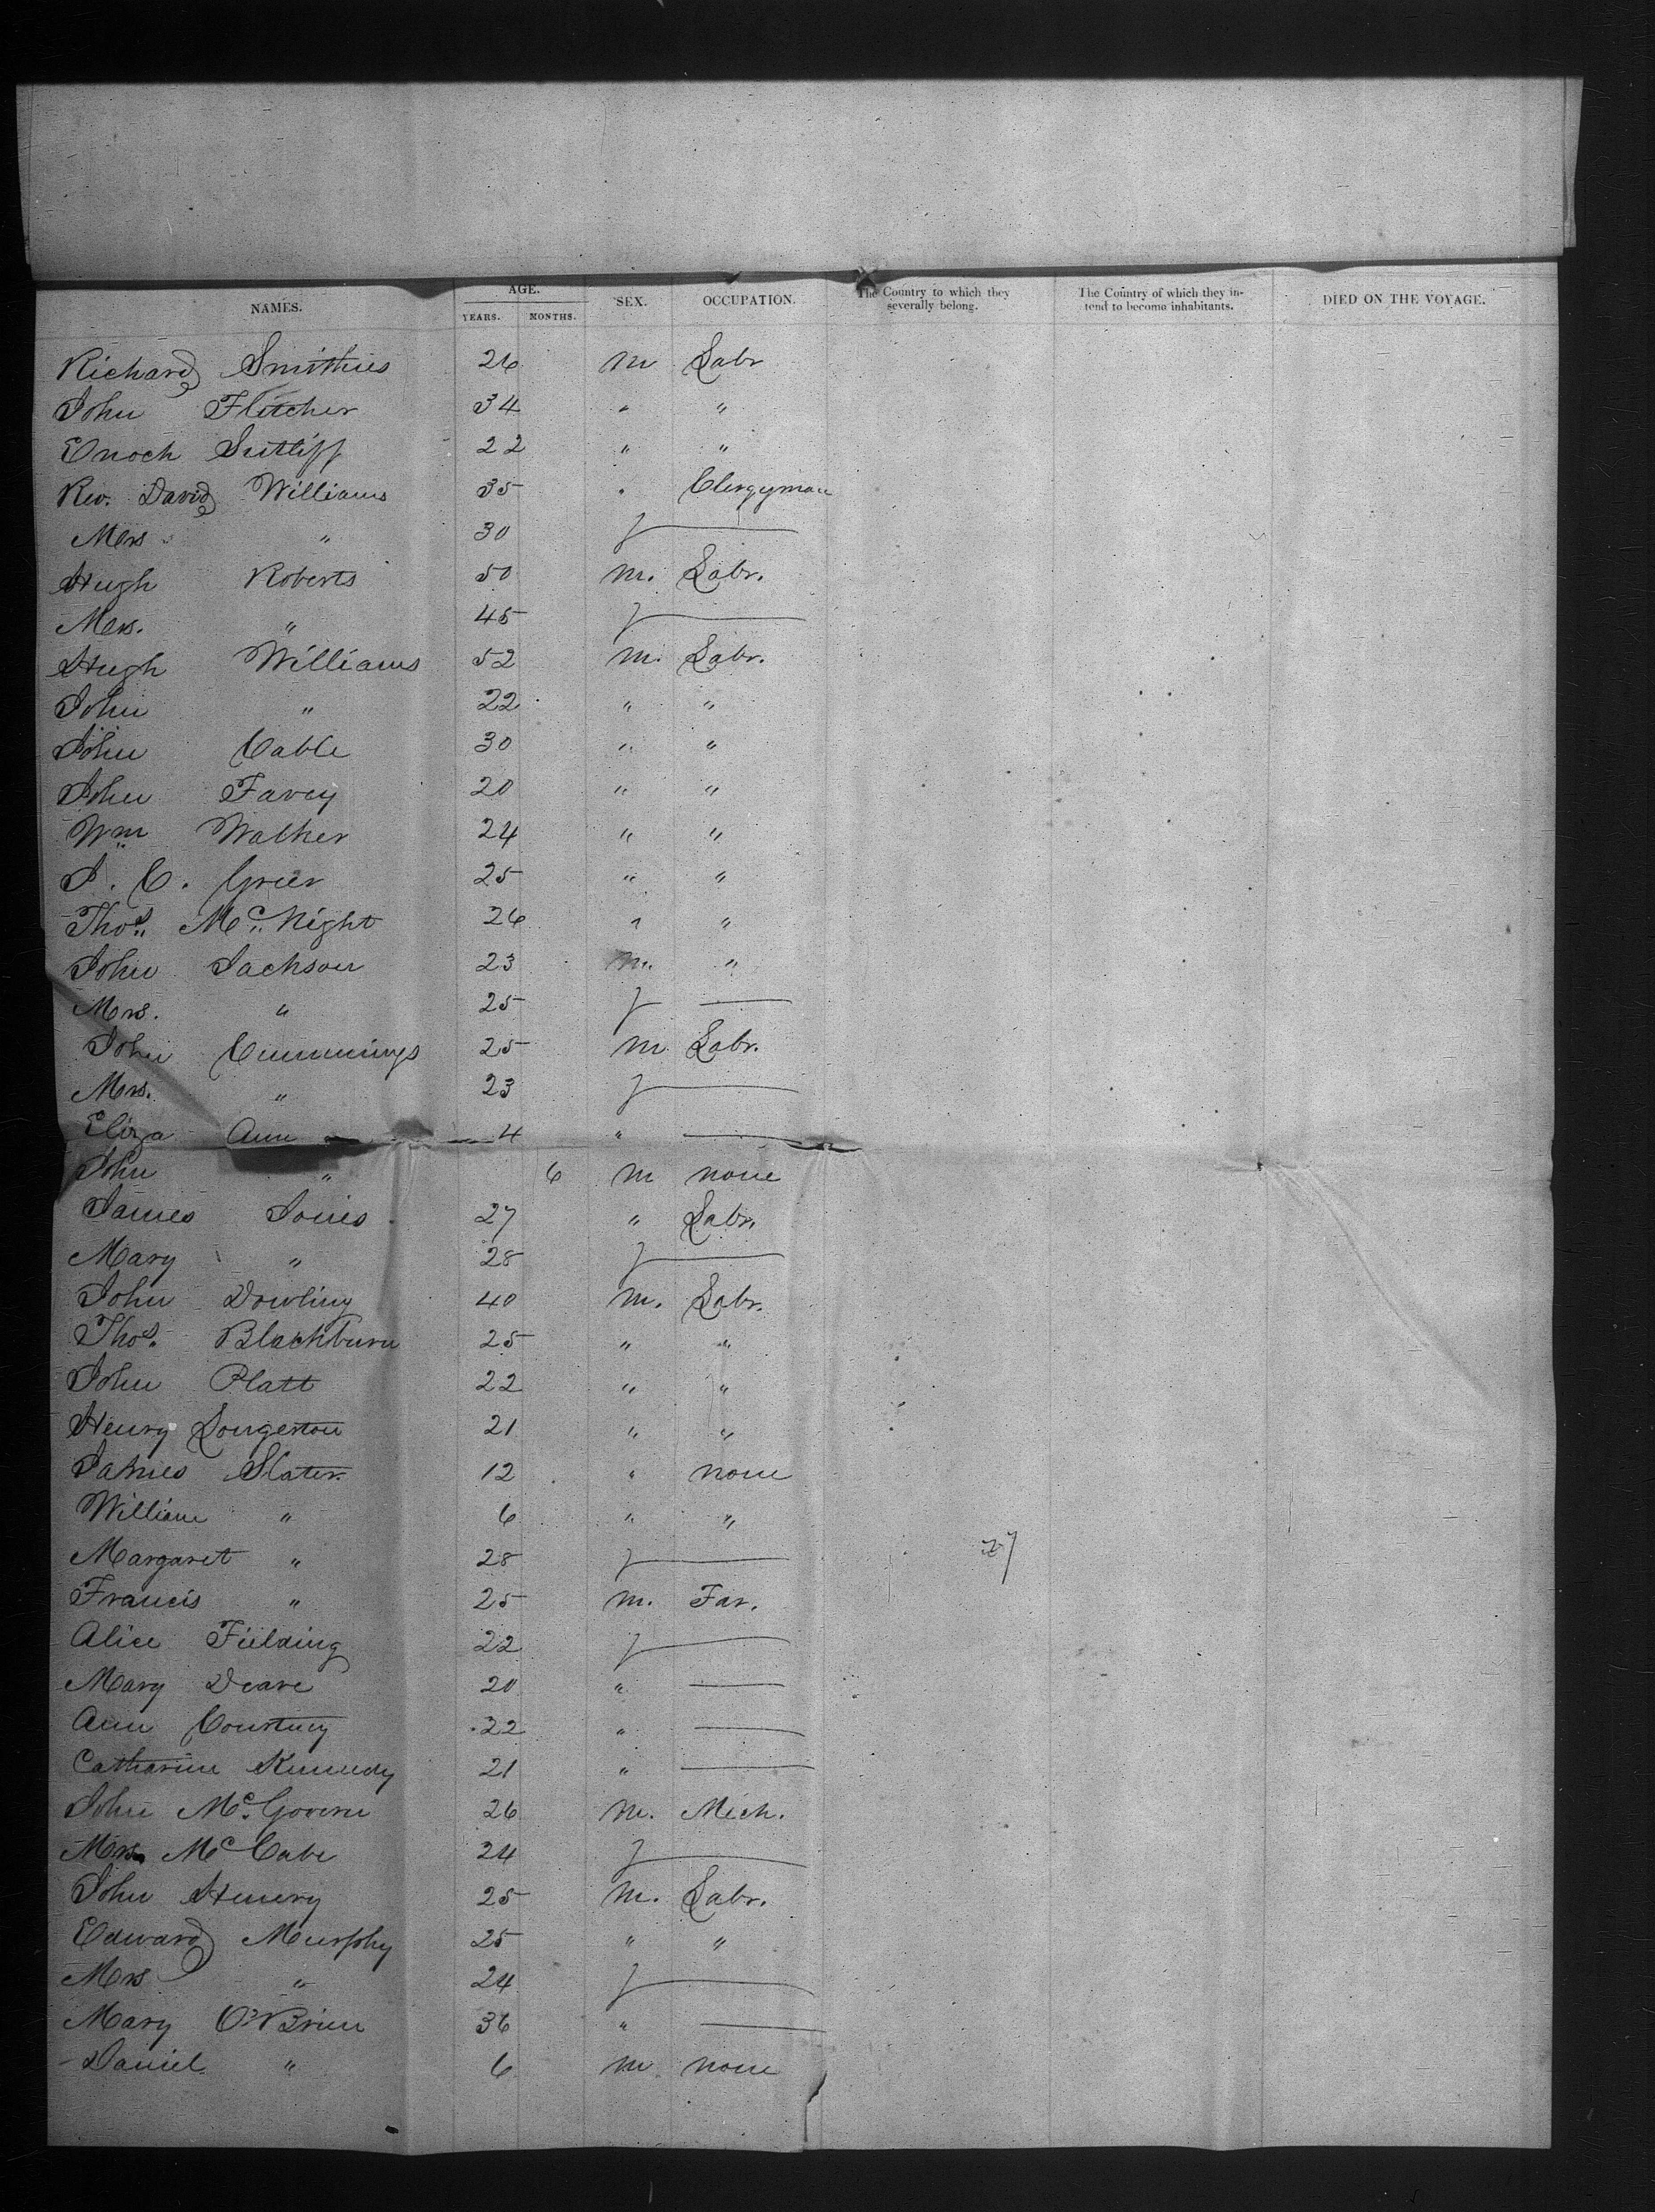 NAMES. AGE. YEARS. MONTHS. SEX. OCCUPATION. The Country to which they severally belong. The Country of which they intend to become inhabitants. DIED ON THE VOYAGE.
Richard Smithies 26 m Labr
John Fletcher 34 " "
Enoch Sutliff 22 " "
Rev. David Williams 35 " Clergyman
Mrs " 30 f —
Hugh Roberts 50 m. Labr.
Mrs. " 45 f —
Hugh Williams 52 m. Labr.
John " 22 " "
John Cable 30 " "
John Favey 20 " "
Wm Walker 24 " "
J. C. Grier 25 " "
Thos. Mc. Night 26 " "
John Jackson 23 m. "
Mrs. " 25 f —
John Cummings 25 m Labr.
Mrs. " 23 f —
Eliza Ann 4 " —
John " 6 m none
James Jones 27 " Labr.
Mary " 28 f —
John Dowling 40 m. Labr.
Thos. Blackburn 25 " "
John Platt 22 " "
Henry Longerton 21 " "
James Slater 12 " none
William " 6 " "
Margaret " 28 f —
27
Francis " 25 m. Far.
Alice Fielding 22 f —
Mary Deare 20 " —
Ann Courtney 22 " —
Catharine Kennedy 21 " —
John Mc. Govern 26 m. Mech.
Mrs. Mc Cabe 24 f —
John Henery 25 m. Labr.
Edward Murphy 25 " "
Mrs " 24 f —
Mary O'Brien 36 " —
Daniel " 6 m none